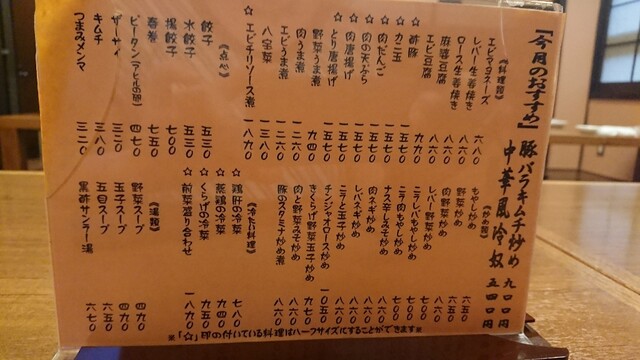 『今月のおすすめ』 豚バラキムチ炒め 九〇〇円
中華風冷奴 五四〇円
《料理類》
エビマヨネーズ 六八〇
レバー生姜焼き 八六〇
ロース生姜焼き 八六〇
麻婆豆腐 八六〇
エビ豆腐 九七〇
カニ玉
☆酢豚
☆肉だんご
☆肉の天ぷら
☆肉唐揚げ
☆とり唐揚げ
野菜うま煮 九四〇
肉うま煮 一二六〇
エビうま煮 一二六〇
八宝菜 一三八〇
☆エビチリソース煮 一八九〇
《点心》
餃子 五三〇
水餃子 五三〇
揚餃子 七〇〇
春巻 七五〇
ピータン(アヒルの卵) 四七〇
ザーサイ 三二〇
キムチ 三八〇
つまみメンマ 三二〇
《炒め類》
もやし炒め 六五〇
野菜炒め 六五〇
肉野菜炒め 八六〇
レバー野菜炒め 八六〇
ニラレバもやし炒め 七〇〇
ニラ肉もやし炒め 七〇〇
ナス辛しみそ炒め
肉ネギ炒め 八六〇
レバネギ炒め 八六〇
ニラと玉子炒め 八六〇
チンジャオロース炒め 一〇五〇
きくらげ野菜玉子炒め
肉と野菜みそ炒め 八六〇
豚のスタミナ炒め煮 八六〇
《冷たい料理》
☆鶏肝の冷菜 七八〇
☆蒸鶏の冷菜 九四〇
☆くらげの冷菜 九五〇
☆前菜盛り合わせ 一八九〇
《湯類》
野菜スープ 四九〇
玉子スープ 四九〇
五目スープ 六五〇
黒酢サンラー湯 六七〇
※「☆」印の付いている料理はハーフサイズにすることができます※